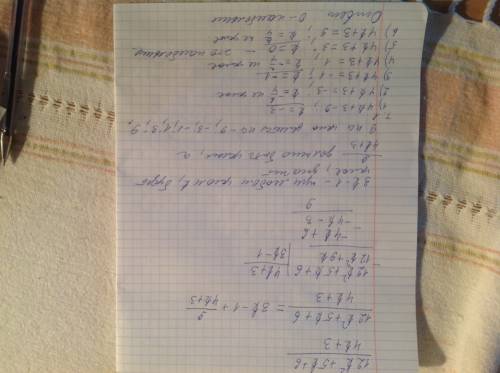 12b²+5b+6
4b+3
12b²+5b+6 / 4b+3 = 3b-1 + 9 / 4b+3
12b²+5b+6 | 4b+3
12b²+9b | 3b-1
-4b+6
-4b-3
9
3b-1 - при любом целом b, будет
целое, значит
9 / 4b+3 должно быть целым, а
9 на цело делится на -9, -3, -1, 1, 3, 9,
т.е.
1) 4b+3=-9; b=-3
2) 4b+3=-3; не целое
3) 4b+3=-1; b=-1
4) 4b+3=1; не целое
5) 4b+3=3; b=0 - это наибольшее
6) 4b+3=9; b=6/4 не целое
Ответ 0 - наибольшее